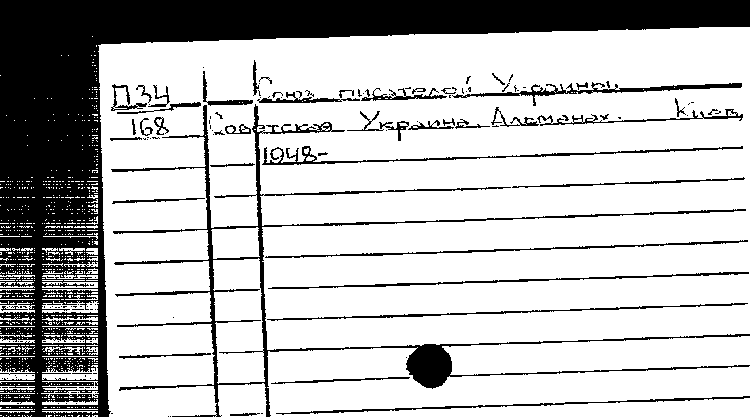 П34 Союз писателей Украины.
168 Советская Украина. Альманах. Киев,
1948-